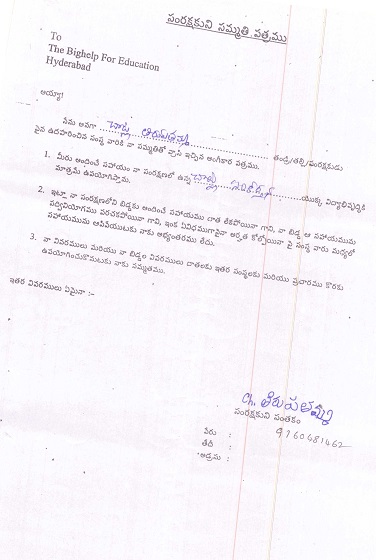 సంరక్షకుని సమ్మతి పత్రము
To
The Bighelp For Education
Hyderabad
అయ్యా!
నేను అనగా చాట్ల తిరుపతమ్మ తండ్రి/తల్లి/సంరక్షకుడు
పైన ఉదహరించిన సంస్థ వారికి నా సమ్మతితో వ్రాసి ఇచ్చిన అంగీకార పత్రము.
1. మీరు అందించే సహాయం నా సంరక్షణలో ఉన్న చాట్ల యొక్క విద్యాభివృద్ధికి
మాత్రమే ఉపయోగిస్తాను.
2. ఇట్లా నా సంరక్షణలోని బిడ్డకు అందించే సహాయము దాత లేకపోయినా గాని, నా బిడ్డ ఆ సహాయమును
సద్వినియోగము పరచకపోయినా గాని, ఇంక ఏవిధముగానైనా అర్హత కోల్పోయినా పై సంస్థ వారు మధ్యలో
సహాయమును ఆపివేయుటకు నాకు అభ్యంతరము లేదు.
3. నా వివరములు మరియు నా బిడ్డల వివరములు దాతలకు ఇతర సంస్థలకు మరియు ప్రచారము కొరకు
ఉపయోగించుకొనుటకు నాకు సమ్మతము.
ఇతర వివరములు ఏమైనా :-
Ch. తిరుపతమ్మ
సంరక్షకుని సంతకం
పేరు : 9760481462
తేదీ :
అడ్రసు :